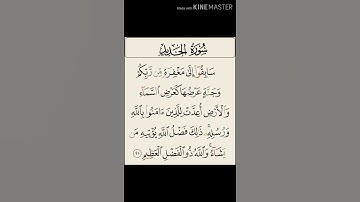 Made with KINEMASTER
سُورَةُ الحَدِيدِ
سَابِقُوٓا۟ إِلَىٰ مَغْفِرَةٍ مِّن رَّبِّكُمْ
وَجَنَّةٍ عَرْضُهَا كَعَرْضِ ٱلسَّمَآءِ
وَٱلْأَرْضِ أُعِدَّتْ لِلَّذِينَ ءَامَنُوا۟ بِٱللَّهِ
وَرُسُلِهِۦ ۚ ذَٰلِكَ فَضْلُ ٱللَّهِ يُؤْتِيهِ مَن
يَشَآءُ ۚ وَٱللَّهُ ذُو ٱلْفَضْلِ ٱلْعَظِيمِ ٢١